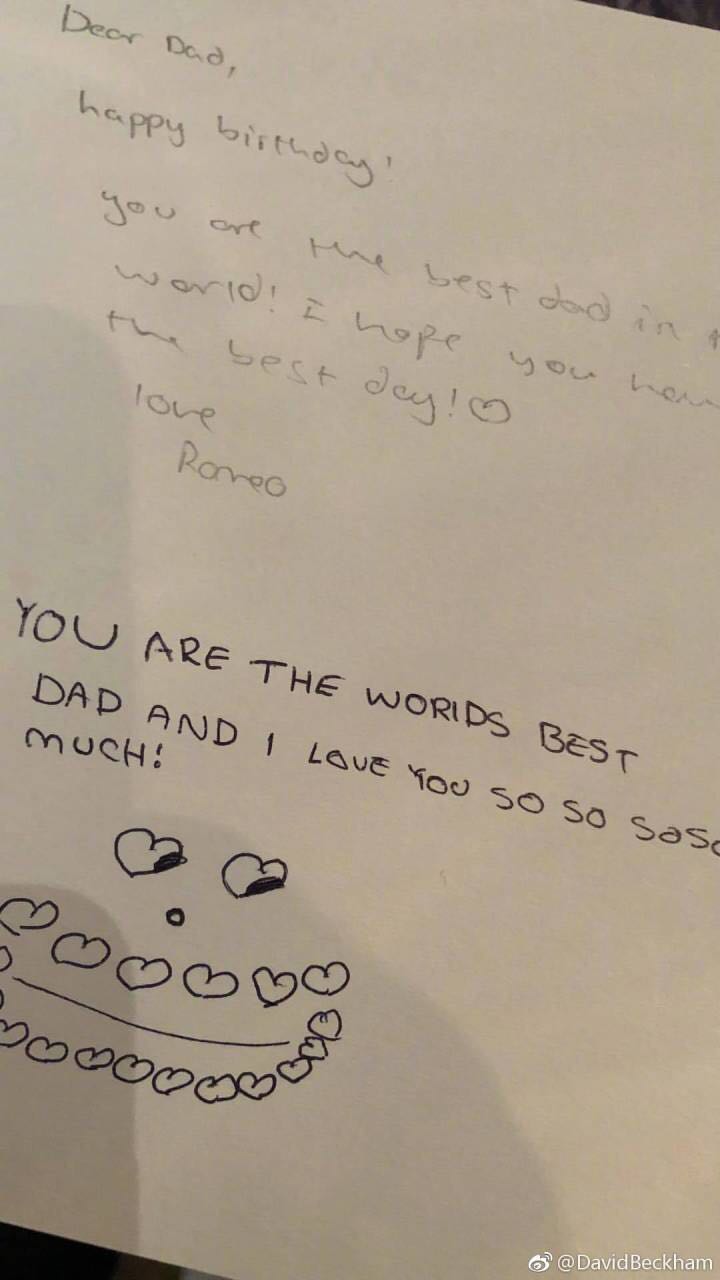 Dear Dad,
happy birthday!
you are the best dad in
world! I hope you
the best day!♡
love
Romeo
YOU ARE THE WORIDS BEST
DAD AND I LOVE YOU SO SO
MUCH!
@DavidBeckham